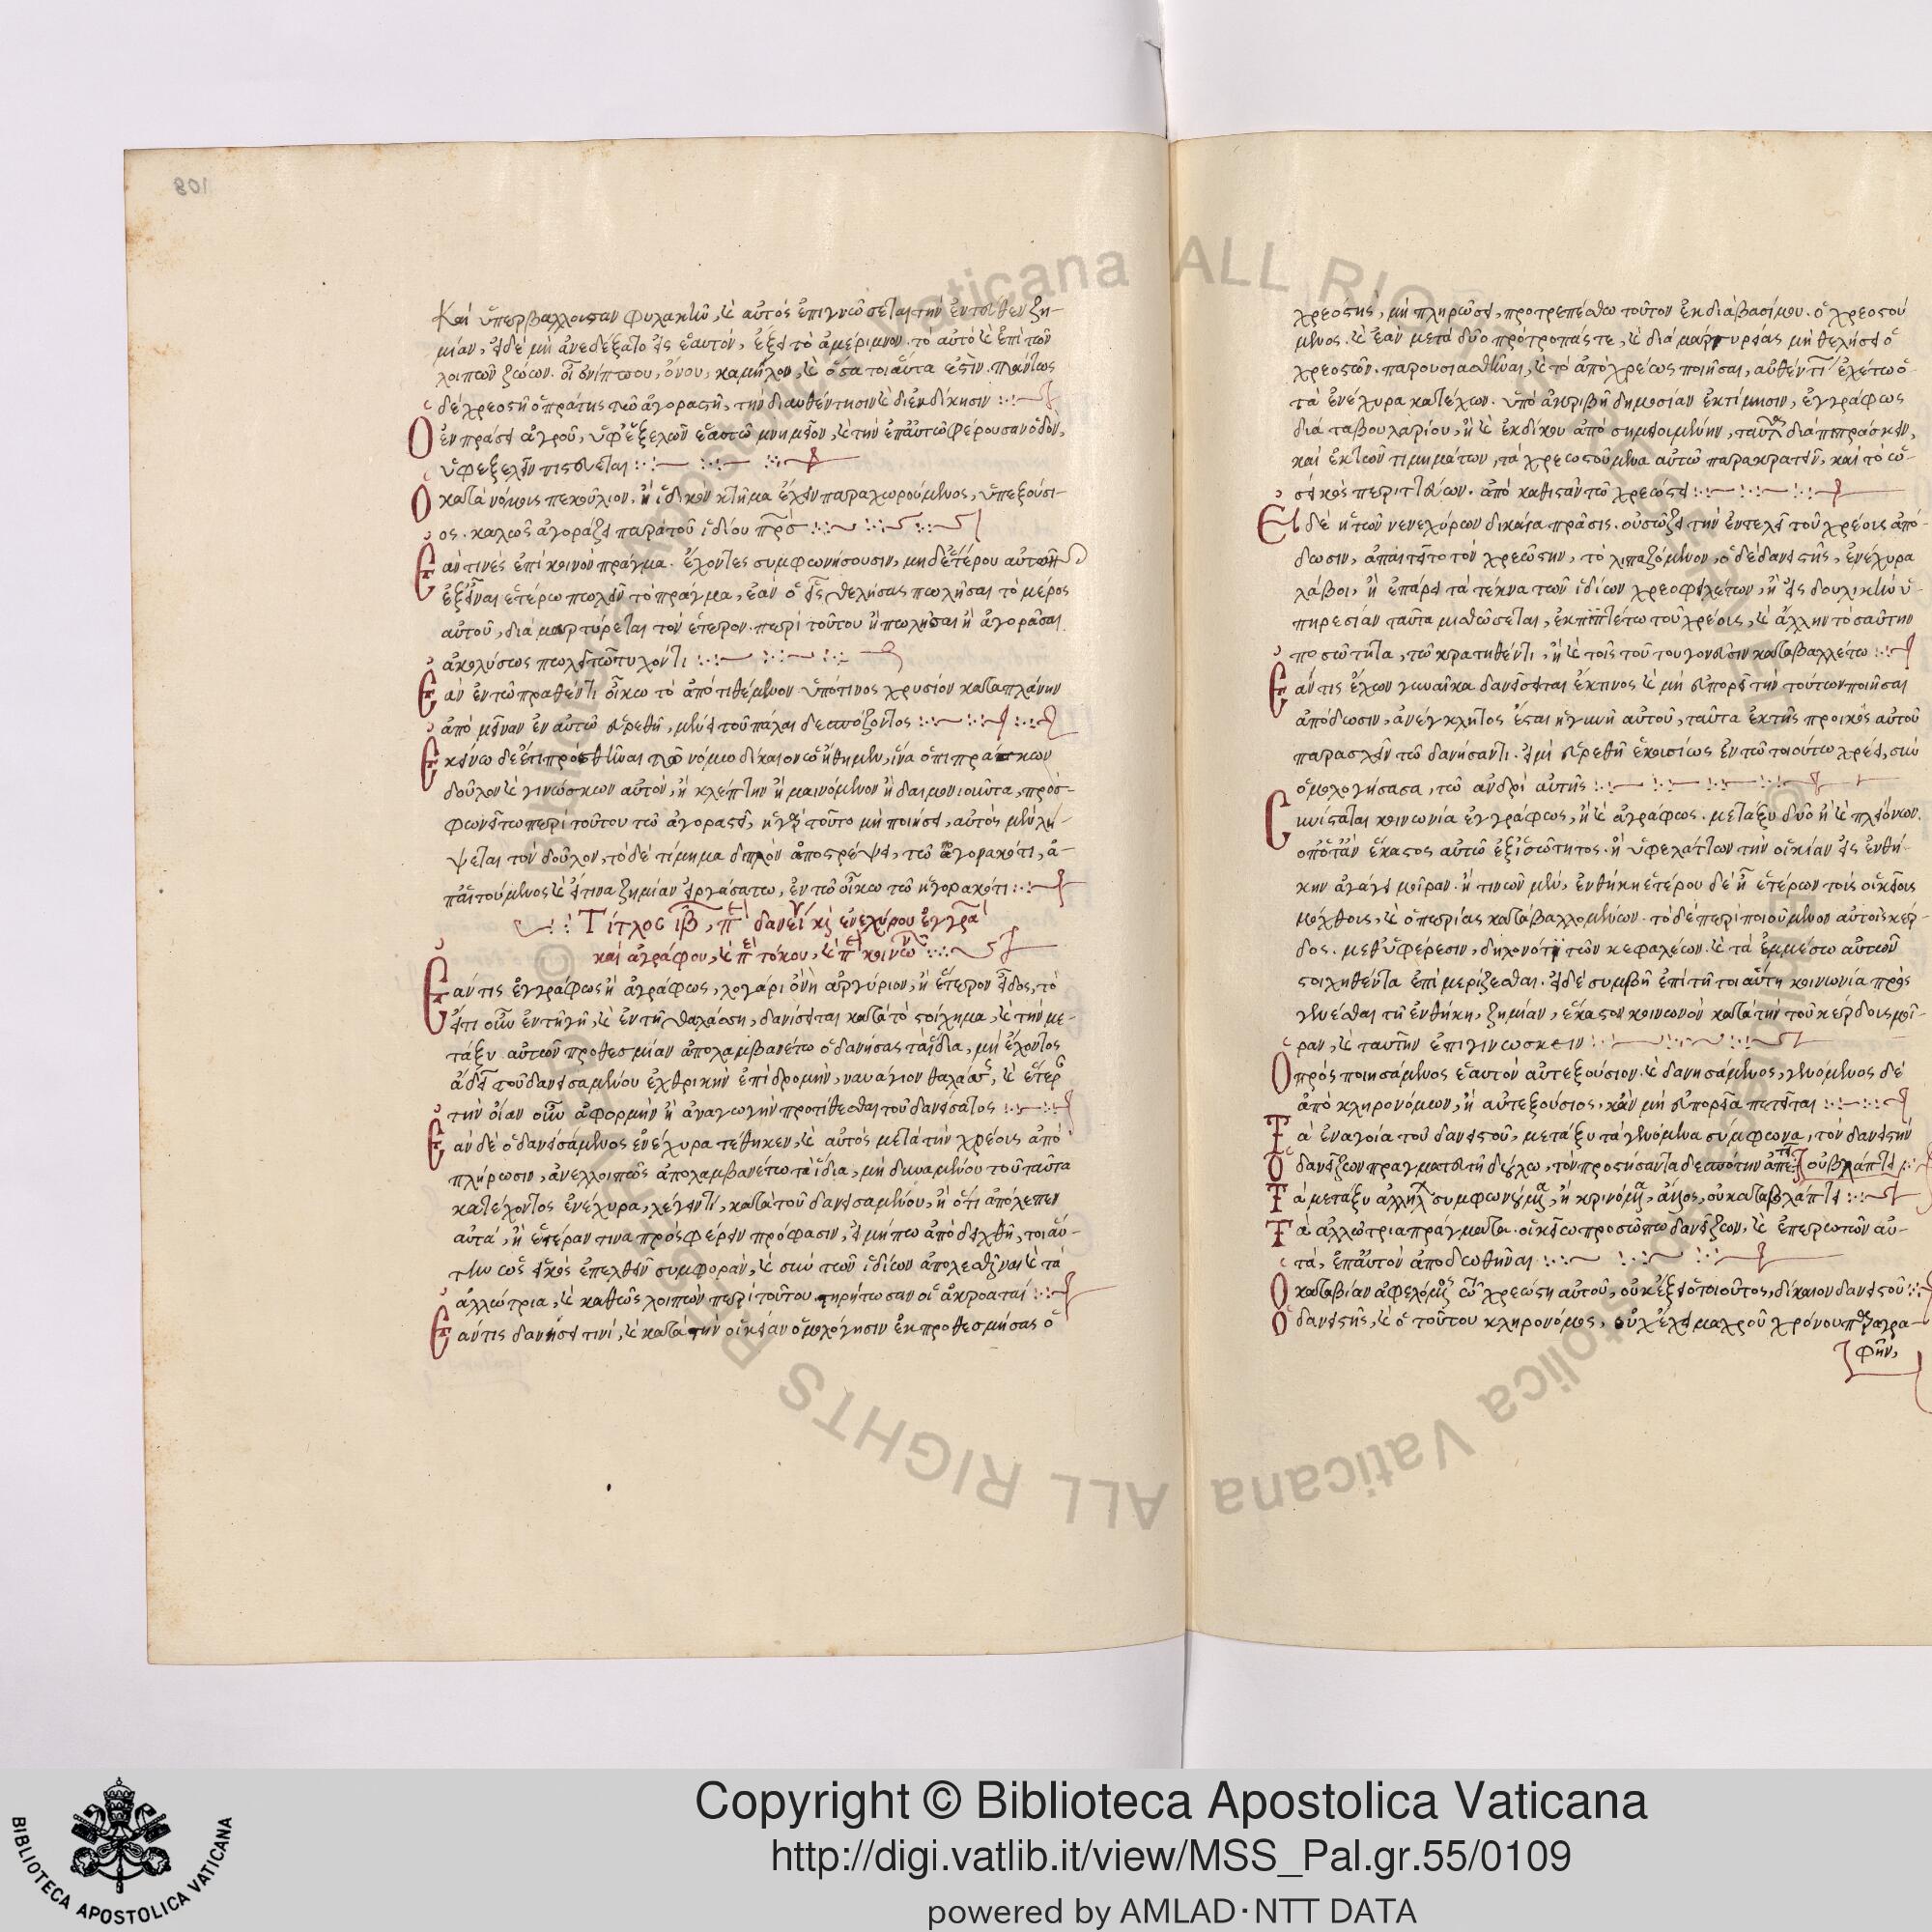 Καὶ ὑπερβάλλουσαν φυλακὴν, καὶ αὐτὸς ἐπιγνώσεται τὴν ἐντεῦθεν ζη-
μίαν, εἰ δὲ μὴ ἀνεδέξατο εἰς ἑαυτόν, ἕξει τὸ ἀμέριμνον. τὸ αὐτὸ καὶ ἐπὶ τῶν
λοιπῶν ζώων. οἷον ἵππου, ὄνου, καμήλου, καὶ ὅσα τοιαῦτα ἐστὶν. πάντως
δὲ χρεοστῆ ὁ πράτης τῶ ἀγοραστῆ, τὴν διαυθέντησιν καὶ διεκδίκησιν
Ὁ ἐν πράσει ἀγροῦ, ὑφεξελὼν ἑαυτῶ μνημεῖον, καὶ τὴν ἐπ' αὐτῶ φέρουσαν ὁδὸν,
ὑφεξελεῖν πιστεύεται
Ὁ κατὰ νόμους πεκούλιον, ἢ ἰδικὸν κτῆμα ἔχειν παραχωρούμενος, ὑπεξούσι-
ος. καλῶς ἀγοράζει παρὰ τοῦ ἰδίου πρς
Ἐάν τινὲς ἐπίκοινον πρᾶγμα. ἔχοντες συμφωνήσουσιν, μηδετέρου αὐτῶν
ἐξεῖναι ἑτέρω πωλεῖν τὸ πρᾶγμα, ἐὰν ὁ εἷς θελήσας πωλῆσαι τὸ μέρος
αὐτοῦ, διαμαρτύρεται τὸν ἕτερον. περὶ τούτου ἢ πωλῆσαι ἢ ἀγοράσαι
ἀκολύσως πωλεῖ τῶ τυχόντι
Ἐὰν ἐν τῶ πραθέντι οἴκω τὸ ἀποτιθέμενον ὑπό τινος χρυσίον κατα πλάνην
ἀπομεῖναν ἐν αὐτῶ εὑρεθῆ, μένει τοῦ πάλαι δεσπόζοντος
Ἐκείνω δὲ ἔτι προστεθῆναι τῶ νόμω δίκαιον ὠήθημεν, ἵνα ὁ πιπράσκων
δοῦλον καὶ γινώσκων αὐτὸν, ἢ κλέπτην ἢ μαινόμενον ἢ δαιμονιοῦντα, προσ-
φωνείτω περὶ τούτου τῶ ἀγοραστῆ, ἢ γὰρ τοῦτο μὴ ποιήσει, αὐτὸς μὲν λή-
ψεται τὸν δοῦλον, τὸ δὲ τίμημα διπλὸν ἀποστρέψει, τῶ ἀγορακότι, ἀ-
παιτούμενος καὶ εἴτινα ζημίαν εἰργάσατω, ἐν τῶ οἴκω τῶ ἠγορακότι
Τίτλος ιβ, π δανεί κ ἐνεχύρου ἐγγρά
καὶ ἀγράφου, καὶ π τόκου, καὶ π κοινω
Ἐάν τις ἐγγράφως ἢ ἀγράφως, λογάρι ὀνὴ ἀργύριον, ἢ ἕτερον εἶδος, τὸ
εἴτι οὖν ἐν τῆ γῆ, καὶ ἐν τῆ θαλάσση, δανίσεται κατὰ τὸ στοίχημα, καὶ τὴν με-
ταξὺ αὐτῶν προθεσμίαν ἀπολαμβανέτω ὁ δανήσας τὰ ἴδια, μὴ ἔχοντος
ἄδει τοῦ δανεισαμένου ἐχθρικὴν ἐπιδρομὴν, ναυάγιον θαλάσς, καὶ ἑτέρ
τὴν οἵαν οὖν ἀφορμὴν ἢ ἀναγωγὴν προτίθεσθαι τοῦ δανείσατος
Ἐὰν δὲ ὁ δανεισάμενος ἐνέχυρα τέθηκεν, καὶ αὐτὸς μετὰ τὴν χρέους ἀπο
πλήρωσιν, ἀνελλοιπῶς ἀπολαμβανέτω τὰ ἴδια, μὴ δυναμένου τοῦ ταῦτα
κατέχοντος ἐνέχυρα, λέγειν τί, κατὰ τοῦ δανεισαμένου, ἢ ὅτι ἀπόλεπεν
αὐτά, ἢ ἑτέραν τινὰ προσφέρειν πρόφασιν, εἰ μήπω ἀποδειχθῆ, τοιαύ-
την ὡς εἰκὸς ἐπελθεῖν συμφορὰν, καὶ σὺν τῶν ἰδίων ἀπολεσθῆναι καὶ τὰ
ἀλλώτρια, καὶ καθὼς λοιπὸν περὶ τούτου τηρήτωσαν οἱ ἀκροαταί
Ἐάν τις δανήσει τινί, καὶ κατὰ τὴν οἰκείαν ὁμολόγησιν ἐκπροθεσμήσας ὁ
χρεόστης, μὴ πληρώσει, προτρεπέσθω τοῦτον ἐκδιαβασίμου. ὁ χρεοστού
μενος. καὶ ἐὰν μετὰ δύο προτροπάς τε, καὶ διαμαρτυρίας μὴ θελήσει ὁ
χρεοστῶν. παρουσιασθῆναι, καὶ τὸ ἀπὸ χρέως ποιῆσαι, αὐθέντι ἐχέτω ὁ
τὰ ἐνέχυρα κατέχων. ὑπὸ ἀκριβῆ δημοσίαν ἐκτίμησιν, ἐγγράφως
διὰ ταβουλαρίου, ἢ καὶ ἐκδίκου ἀποσημειουμένην, ταῦτα διαπιπράσκειν,
καὶ ἐκ τῶν τιμημάτων, τὰ χρεωστούμενα αὐτῶ παρακρατεῖν, καὶ τὸ ὡ-
σεικὸς περιττεύων. ἀποκαθιστᾶν τῶ χρεώστει
Εἰ δὲ ἡ τῶν νενεχύρων δικαία πρᾶσις. οὐ σώζει τὴν ἐντελῆ τοῦ χρέους ἀπό-
δωσιν, ἀπαιτεῖτο τὸν χρεώστην, τὸ λιπαζόμενον, ὁ δὲ δανειστὴς, ἐνέχυρα
λάβοι, ἢ ἐπάρει τὰ τέκνα τῶν ἰδίων χρεοφειλέτων, ἢ εἰς δουλικὴν ὑ-
πηρεσίαν ταῦτα μισθώσεται, ἐκπιπτέτω τοῦ χρέους, καὶ ἄλλην τοσαύτην
ποσώτητα, τῶ κρατηθέντι, ἢ καὶ τοῖς τούτου γονεῦσιν καταβαλλέτω
Ἐάν τις ἔχων γυναῖκα δανείσεται ἔκ τινος καὶ μὴ εὐπορεῖ τὴν τούτων ποιῆσαι
ἀπόδωσιν, ἀνέγκλητος ἔσται ἡ γυνὴ αὐτοῦ, ταῦτα ἐκ τῆς προικὸς αὐτοῦ
παρασχεῖν τῶ δανήσαντι. εἰ μὴ εὑρεθῆ ἑκουσίως ἐν τῶ τοιούτω χρέει, συν
ὁμολογήσασα, τῶ ἀνδρὶ αὐτῆς
Συνίσταται κοινωνία ἐγγράφως, ἢ καὶ ἀγράφως. μεταξὺ δύο ἢ καὶ πλειόνων.
ὁπόταν ἕκαστος αὐτῶ ἐξισώτητος. ἢ ὑφελάττων τὴν οἰκίαν εἰς ἐνθή-
κην ἀγάγει μοῖραν. ἢ τινῶν μὲν, ἐνθήκη ἑτέρου δὲ ἢ ἑτέρων τοῖς οἰκείοις
μόχθοις, καὶ ὁ πειρίας καταβαλλομένων. τὸ δὲ περιποιούμενον αὐτοῖς κέρ-
δος. μεθυφέρεσιν, δηλονότι τῶν κεφαλέων. καὶ τὰ ἐμμέσω αὐτῶν
στοιχηθέντα ἐπιμερίζεσθαι. εἰ δὲ συμβῆ ἐπὶ τῆ τοιαύτη κοινωνία προς
γενέσθαι τῆ ἐνθήκη, ζημίαν, ἕκαστον κοινωνὸν κατὰ τὴν τοῦ κέρδους μοῖ-
ραν, καὶ ταύτην ἐπιγινώσκειν
Ὁ προσποιησάμενος ἑαυτὸν αὐτεξούσιον. καὶ δανησάμενος, γενόμενος δὲ
ἀπὸ κληρονόμων, ἢ αὐτεξούσιος, κἂν μὴ εὐπορεῖ ἀπαιτεῖται
Τὰ ἐναγοία τοῦ δανειστοῦ, μεταξὺ τὰ γενόμενα σύμφωνα, τὸν δανειστὴν
οὐ βλάπτει
Ὁ δανείζων πραγματευτῆ δούλω, τὸν προστήσαντα δεσπότην ἀπαι
Τὰ μεταξὺ ἀλλήλ συμφωνούμ, ἢ κρινόμ, ἄλλος, οὐ καταβλάπτει
Τὰ ἀλλότρια πράγματα. οἰκείω προσώπω δανείζων, καὶ ἐπερωτῶν αὐ-
τά, ἐπ' αὐτὸν ἀποδωθῆναι
Ὁ κατὰ βίαν ἀφελόμς ὧ χρεώστη αὐτοῦ, οὐκ ἕξει ὁ τοιοῦτος, δίκαιον δανειστοῦ
Ὁ δανειστὴς, καὶ ὁ τούτου κληρονόμος, οὐχ ἕλει μακροῦ χρόνου παραγρα-
φὴν,
Copyright © Biblioteca Apostolica Vaticana
http://digi.vatlib.it/view/MSS_Pal.gr.55/0109
powered by AMLAD·NTT DATA
BIBLIOTECA APOSTOLICA VATICANA